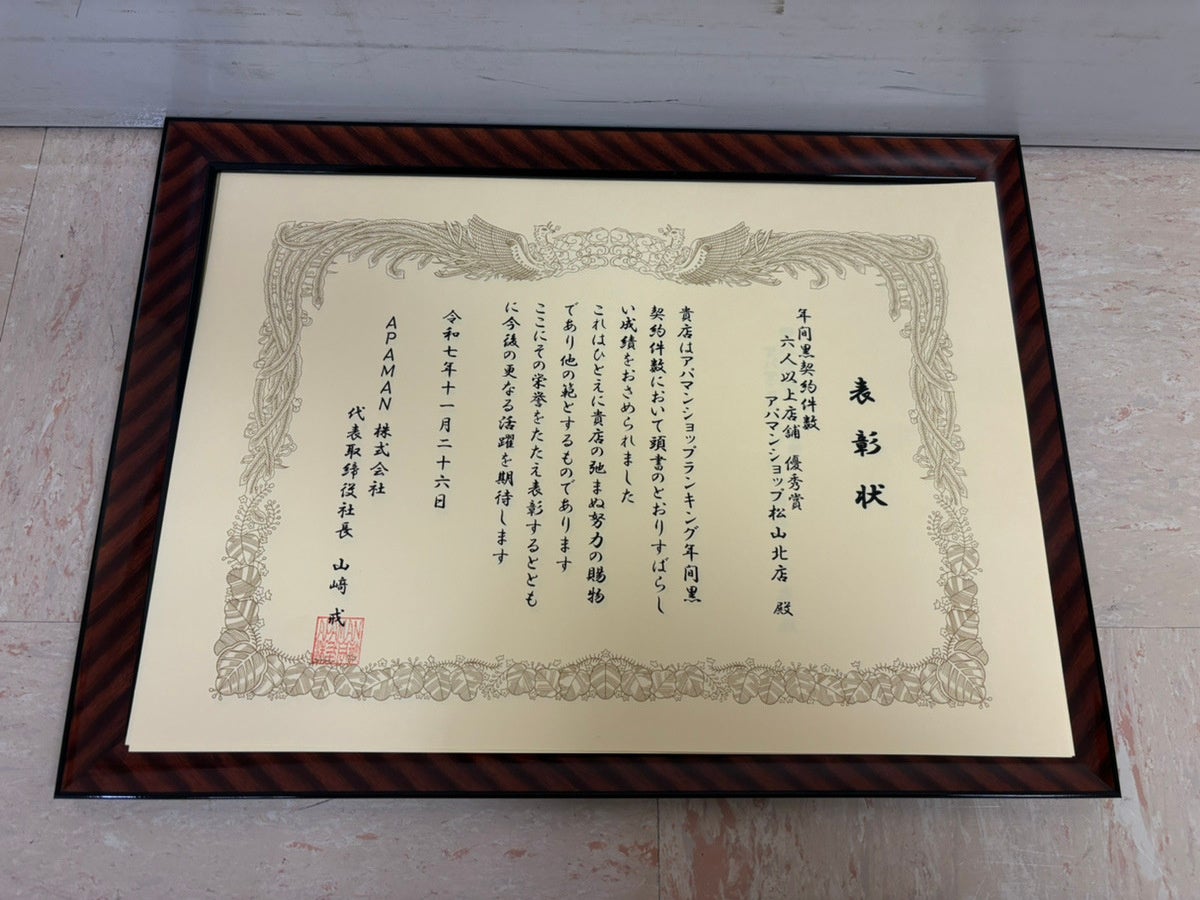 表彰状
年间黒契約件数
六人以上店舗 優秀賞
アパマンショップ松山北店 殿
貴店はアパマンショップランキング年间黒
契約件数において頭書のとおりすばらし
い成績をおさめられました
これはひとえに貴店の弛まぬ努力の賜物
であり他の範とするものであります
ここにその栄誉をたたえ表彰するととも
に今後の更なる活躍を期待します
令和七年十一月二十六日
APAMAN 株式会社
代表取締役社長 山﨑 戒